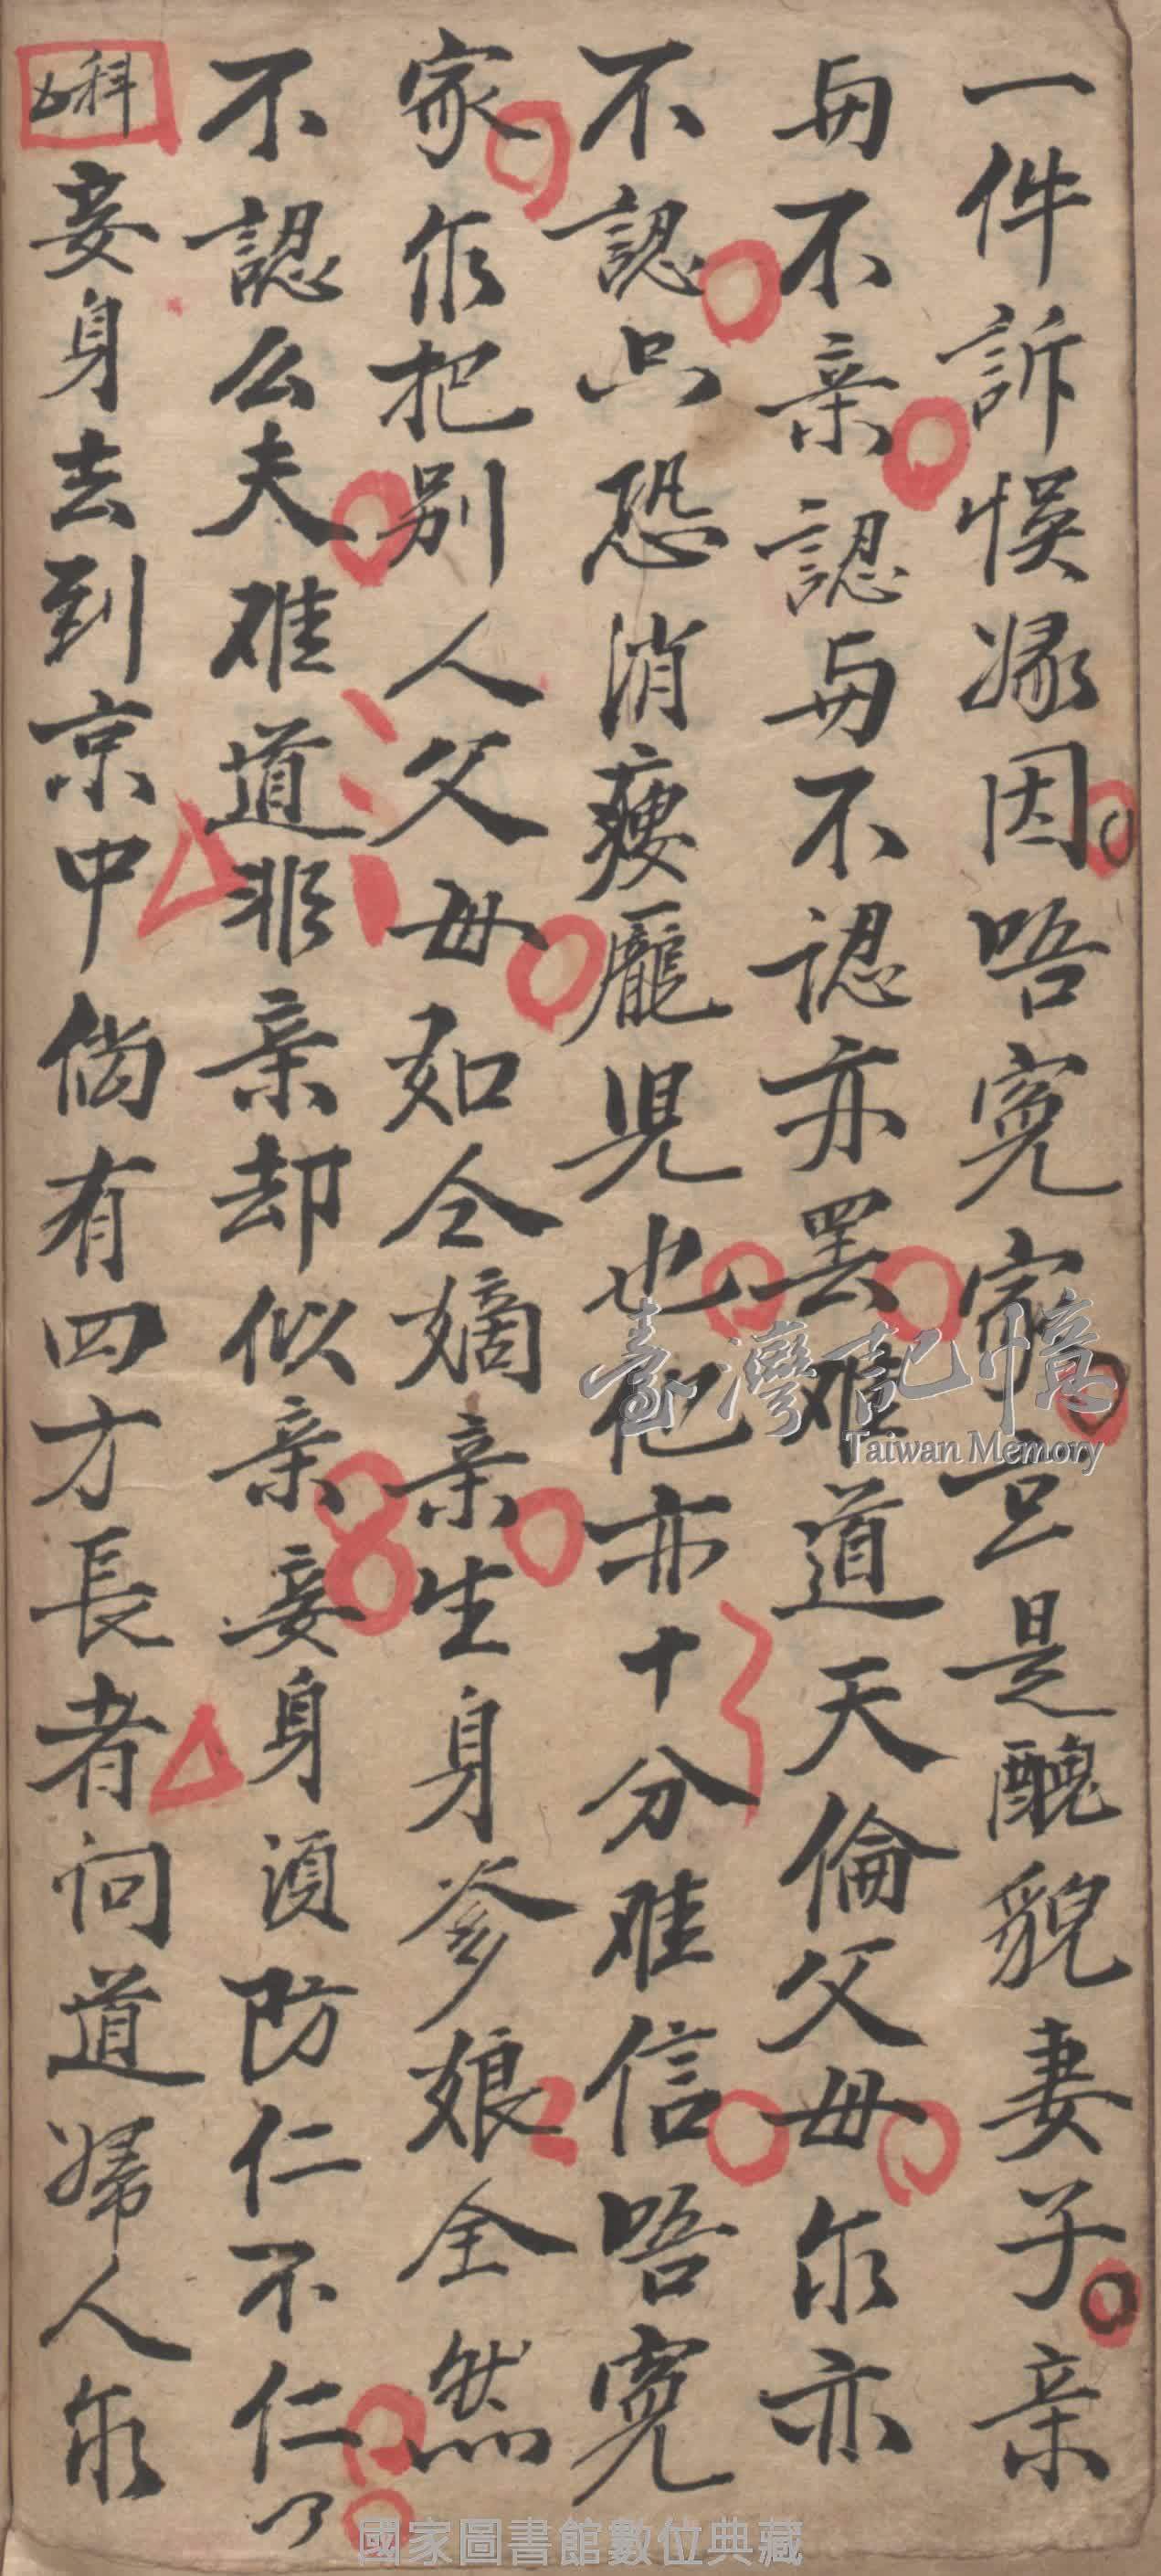 一件訴悞緣因唔寃家亘是醜貌妻子亲
与不亲認与不認亦罢难道天倫父母尔亦
不認只恐消瘦龐児也他亦十分难信唔寃
家尔把别人父母如仝嫡亲生身爹娘全然
不認么夫难道非亲却似亲妾身須防仁不仁了
科妾身去到京中倘有四方長者问道婦人尔
臺灣記憶
Taiwan Memory
國家圖書館數位典藏